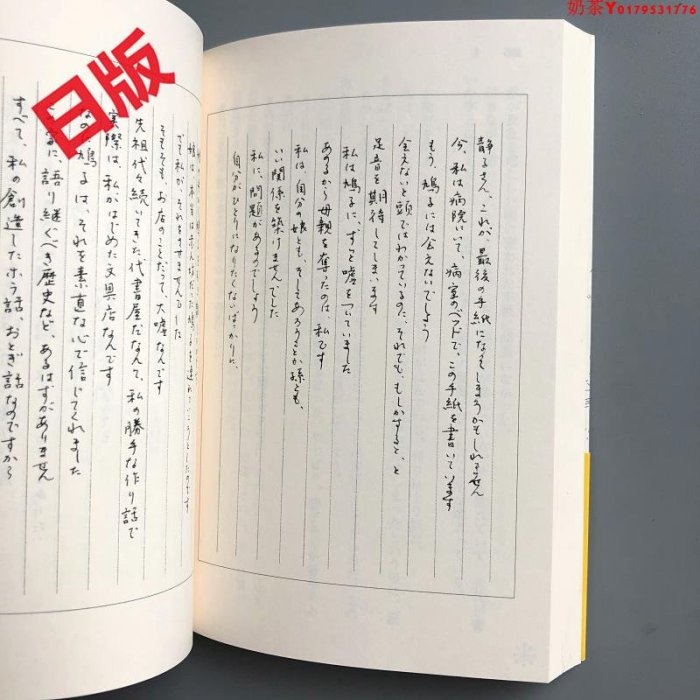 奶茶Y0179531776
日版
静子さん、これが、最後の手紙になってしまうかもしれません
今、私は病院にいて、病室のベッドで、この手紙を書いています
もう、鳩子には会えないでしょう
会えないと頭ではわかっているのに、それでも、もしかすると、と
足音を期待してしまいます
私は鳩子に、ずっと嘘をついていました
あの子から母親を奪ったのは、私です
私は、自分の娘とも、そしてあろうことか孫とも、
いい関係を築けませんでした
私に、問題があるのでしょう
自分がひとりになりたくないばっかりに、
鳩子を連れていこうとしたのです
でも私が、それをさせませんでした
そもそも、お店のことだって、大嘘なんです
先祖代々続いてきた代書屋だなんて、私の勝手な作り話で
実際は、私がはじめた文具店なんです
なのに鳩子は、それを素直な心で信じてくれました
に、語り継ぐべき歴史など、あるはずがありません
すべて、私の創造したホラ話、おとぎ話なのですから